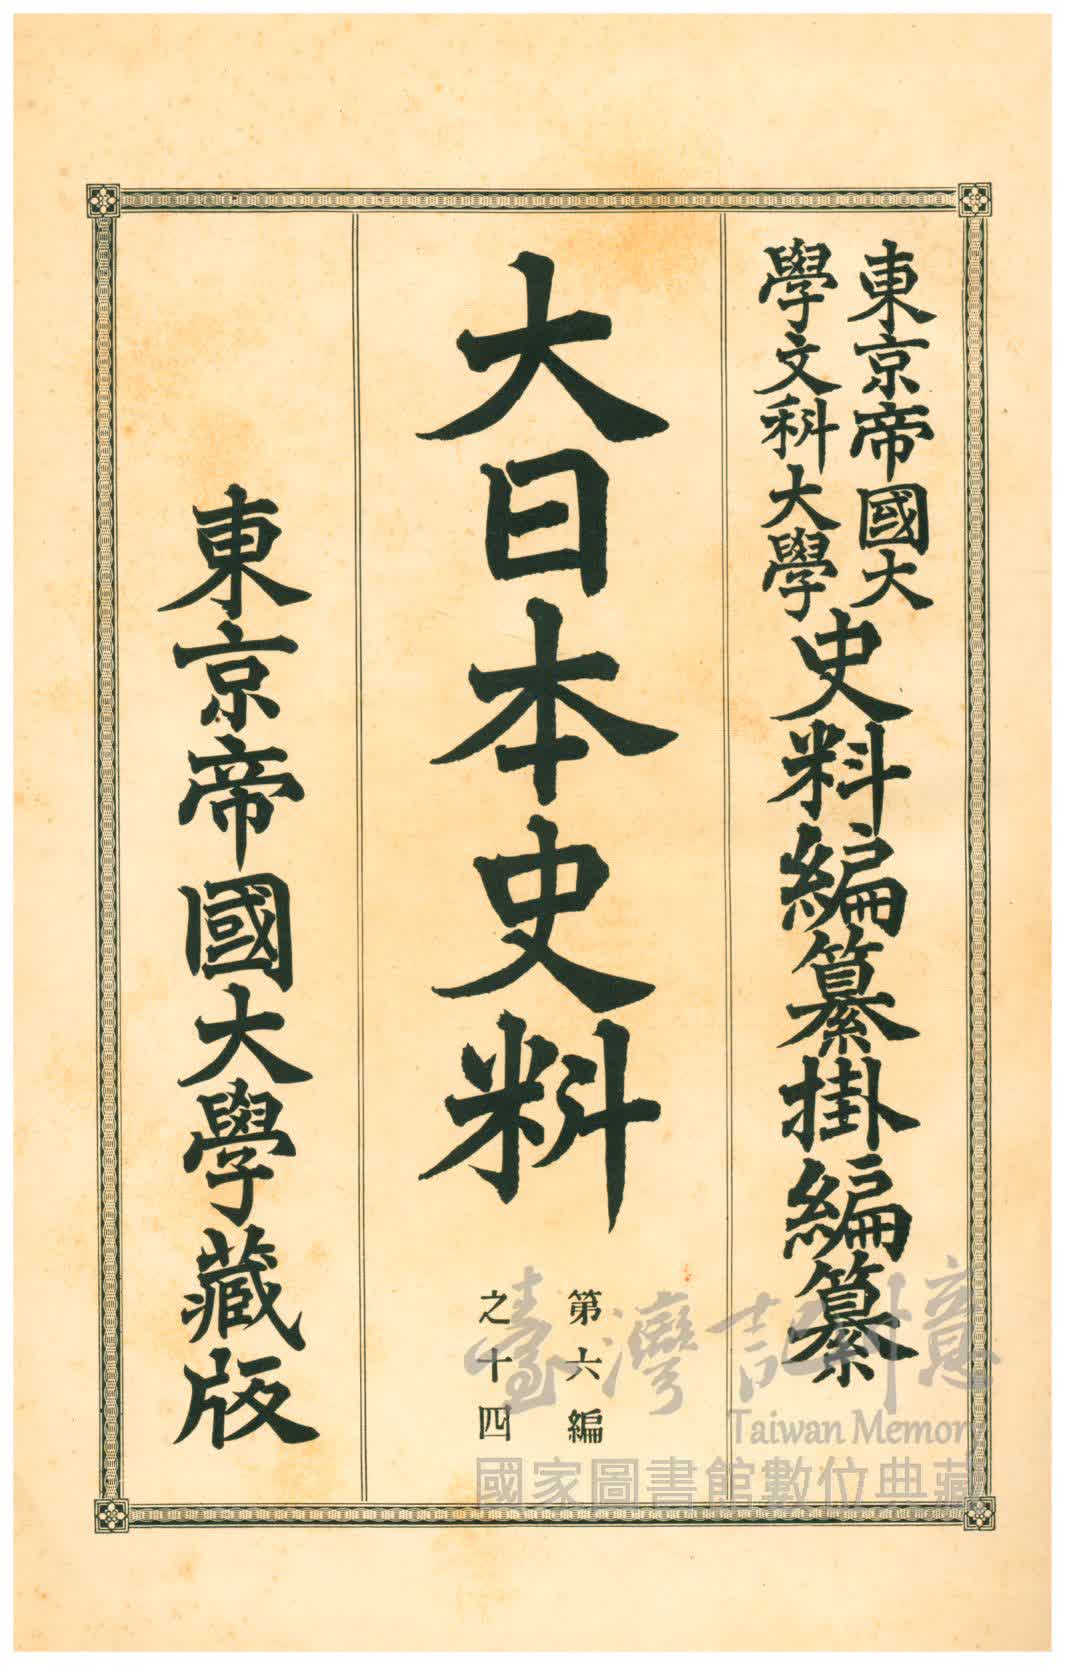 東京帝國大
學文科大學
史料編纂掛編纂
大日本史料
第六編
之十四
東京帝國大學藏版
臺灣記憶
Taiwan Memory
國家圖書館數位典藏